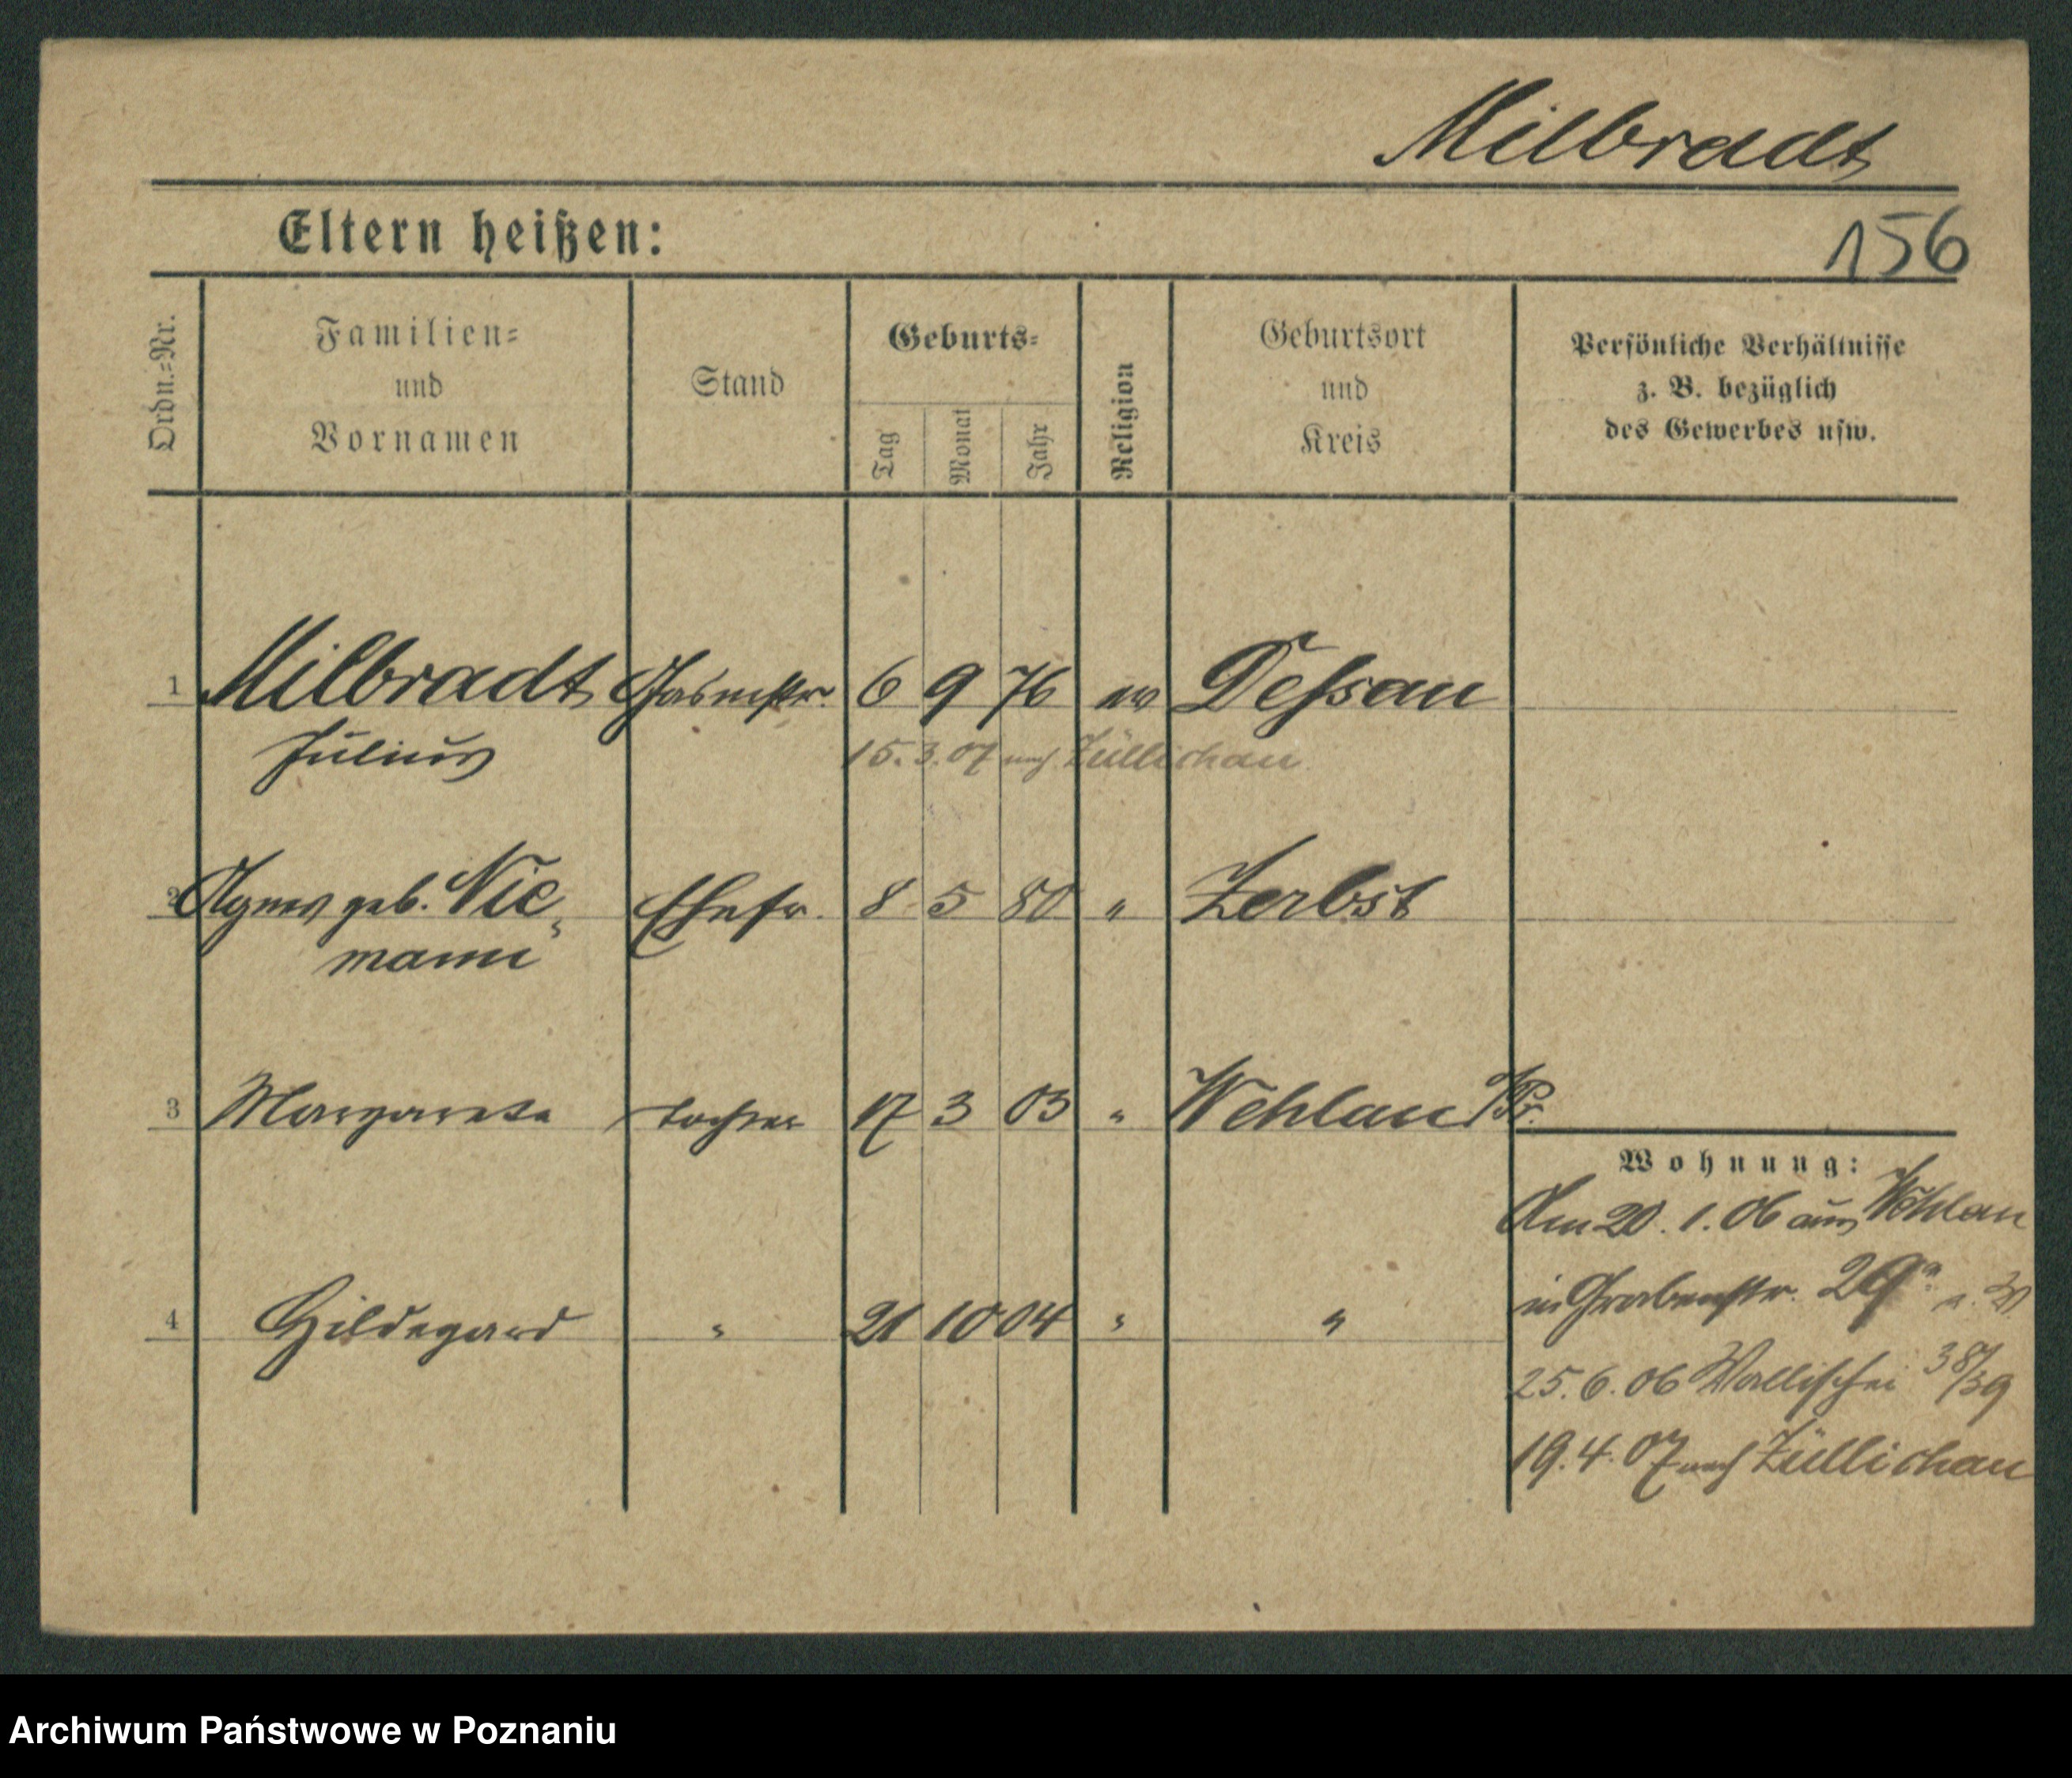 Milbradt
Eltern heißen:
156
Ordn.-Nr.
Familien-
und
Vornamen
Stand
Geburts-
Tag
Monat
Jahr
Religion
Geburtsort
und
Kreis
Persönliche Verhältnisse
z. B. bezüglich
des Gewerbes usw.
1 Milbradt Gasmstr. 6 9 76 ev Dessau
Julius
15. 3. 07 nach Züllichau
2 Agnes geb. Nie- Ehefr. 8 5 80 " Zerbst
mann
3 Margarete Tochter 17 3 03 " Wehlau Pr.
4 Hildegard " 21 10 04 " "
Wohnung:
Am 20. 1. 06 aus Wehlau
in Grabenstr. 29a
25. 6. 06 Wallischei 38/39
19. 4. 07 nach Züllichau
Archiwum Państwowe w Poznaniu